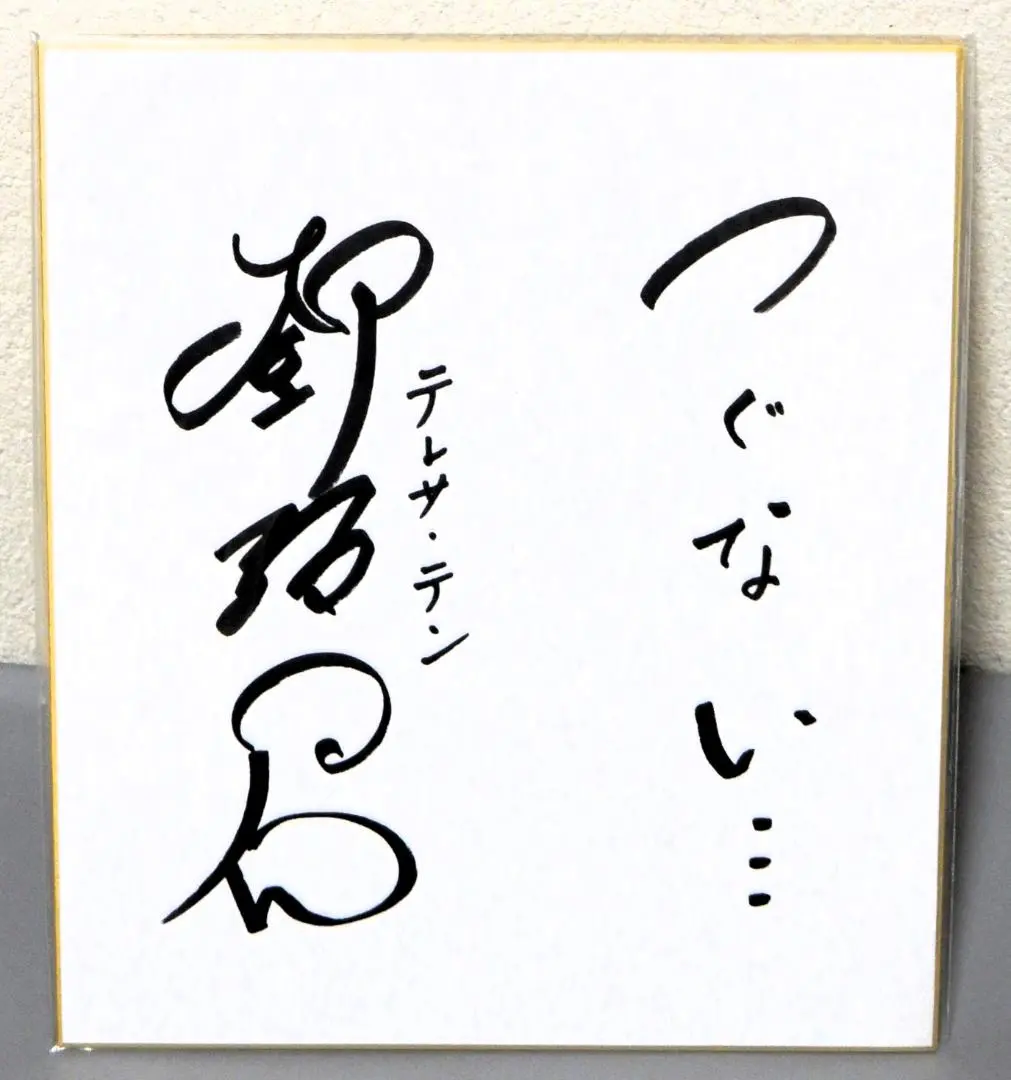 つぐない…
テレサ・テン
鄧麗君